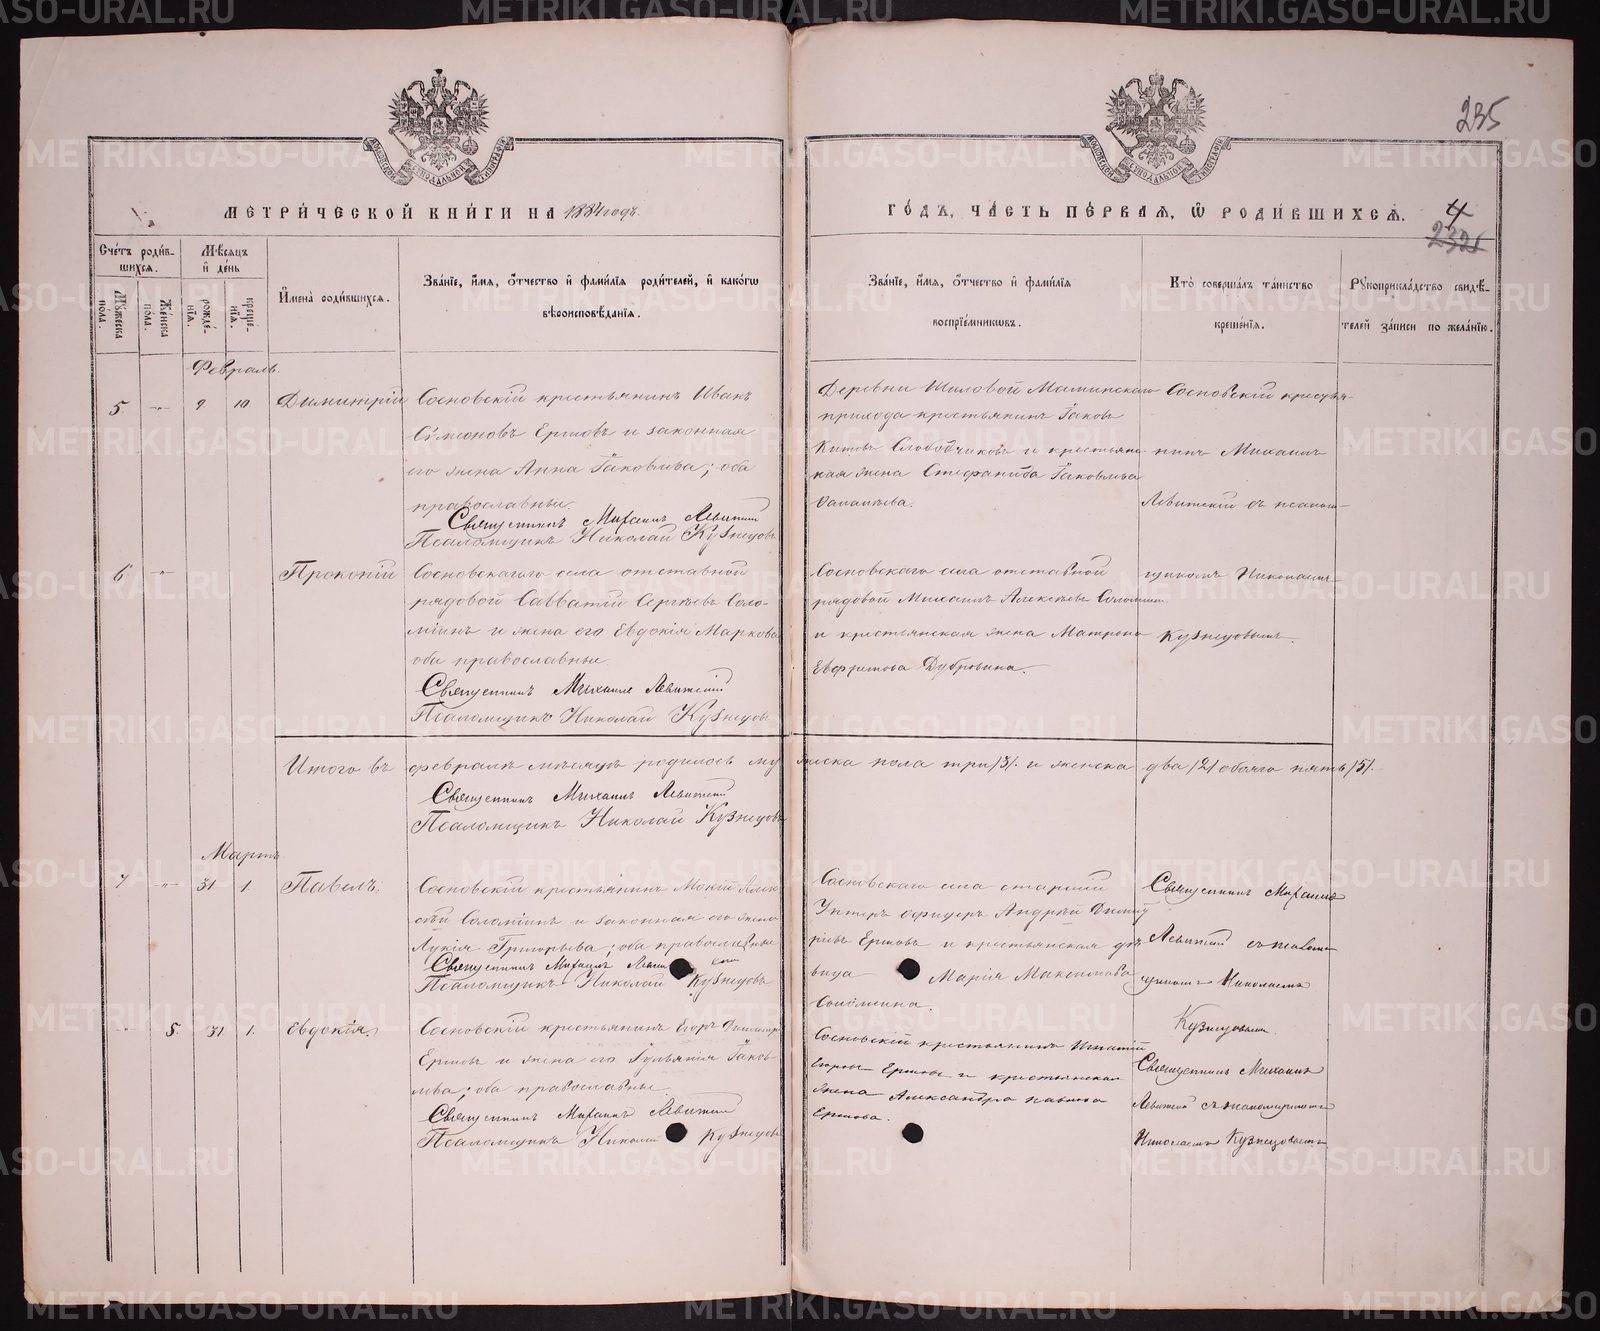 235
МЕТРИЧЕСКОЙ КНИГИ НА 1884 годъ.
ГОДЪ, ЧАСТЬ ПЕРВАЯ, Ѡ РОДИВШИХСЯ.
4
Счетъ родившихся.
Мужеска пола.
Женска пола.
Мѣсяцъ и день
рожденія.
крещенія.
Имена родившихся.
Званіе, имя, отчество и фамилія родителей, и какогѡ
вѣроисповѣданія.
Званіе, имя, отчество и фамилія
воспріемниковъ.
Кто совершалъ таинство
крещенія.
Рукоприкладство свидѣ-
телей записи по желанію.
Февраль.
5 9 10 Димитрій
Сосновскій крестьянинъ Иванъ
Симеоновъ Ершовъ и законная
его жена Анна Іаковлева; оба
православные.
Священникъ Михаилъ Левитскій
Псаломщикъ Николай Кузнецовъ
Деревни Шиловой Маминскаго
прихода крестьянинъ Іаковъ
Титовъ Слободчиковъ и крестьянс-
кая жена Стефанида Іаковлева
Сосновскій
Михаилъ
Левитскій съ псалом-
6 Прокопій
Сосновскаго села отставной
рядовой Савватій Сергѣевъ Соло-
минъ и жена его Евдокія Маркова
оба православные
Священникъ Михаилъ Левитскій
Псаломщикъ Николай Кузнецовъ
Сосновскаго села отставной
рядовой Михаилъ Алексѣевъ Соломинъ
и крестьянская жена Матрона
Дубровина.
щикомъ Николаемъ
Кузнецовымъ.
Итого въ февралѣ мѣсяцѣ родилось мужеска пола три /3/. и женска два /2/ обоего пять /5/.
Священникъ Михаилъ Левитскій
Псаломщикъ Николай Кузнецовъ
Мартъ
7 31 1. Павелъ.
Сосновскій крестьянинъ Мокій Алек-
сѣевъ Соломинъ и законная его жена
Лукія Григорьева; оба православные
Священникъ Михаилъ
Псаломщикъ Николай Кузнецовъ
Сосновскаго села старшій
Унтеръ офицеръ Андрей Димит-
ріевъ Ершовъ и крестьянская дѣ-
вица Марія Максимова
Соломина.
Священникъ Михаилъ
Левитскій съ псалом-
щикомъ Николаемъ
Кузнецовымъ.
5 31 1. Евдокія.
Сосновскій крестьянинъ Егоръ
Ершовъ и жена его Іуліанія Іаков-
лева; оба православные
Священникъ Михаилъ Левитскій
Псаломщикъ Николай Кузнецовъ
Сосновскій крестьянинъ Игнатій
Ершовъ и крестьянская
жена Александра Павлова
Ершова.
Священникъ Михаилъ
Левитскій съ псаломщикомъ
Николаемъ Кузнецовымъ
METRIKI.GASO-URAL.RU